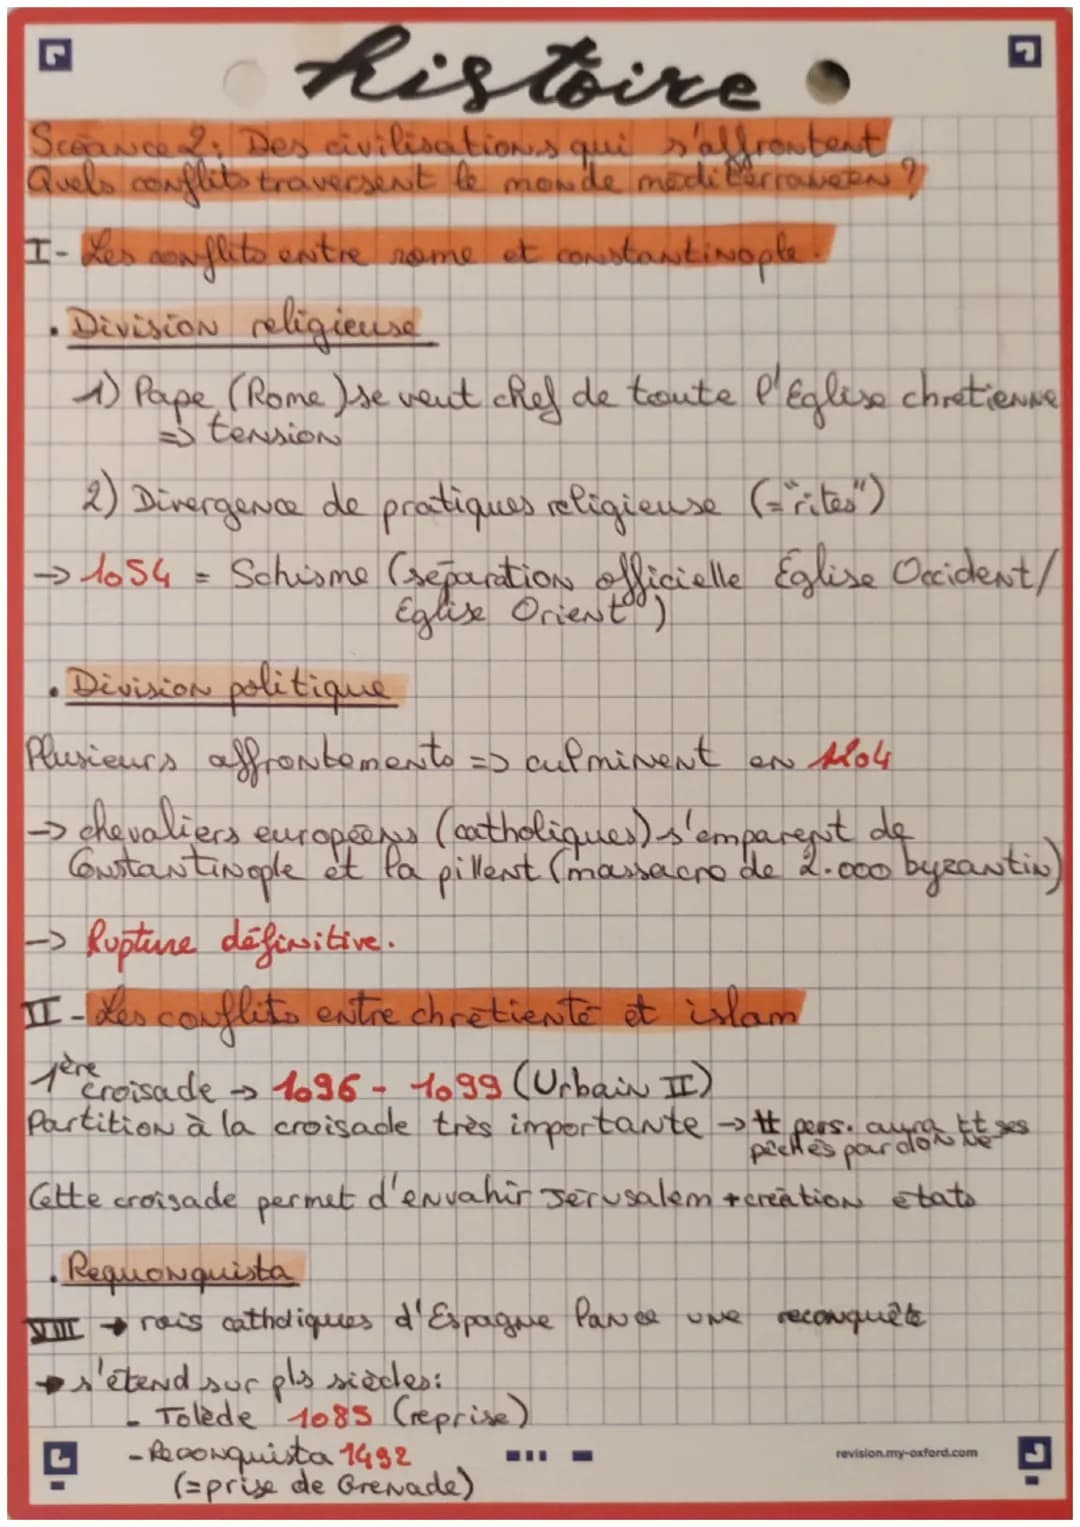 histoire
Scéance 2: Des civilisations qui s'affrontent
Quels conflits traversent le monde méditerranéen ?
I- Les conflits entre rome et constantinople.
• Division religieuse
1) Pape (Rome) se veut chef de toute l'Eglise chrétienne
=> tension
2) Divergence de pratiques religieuse (="rites")
-> 1054 = Schisme (séparation officielle Eglise Occident/
Eglise Orient")
• Division politique
Plusieurs affrontements => culminent en 1204
-> chevaliers européens (catholiques) s'emparent de
Constantinople et la pillent (massacre de 2.000 byzantin)
-> Rupture définitive.
II- Les conflits entre chrétienté et islam
1ère croisade -> 1096 - 1099 (Urbain II)
Partition à la croisade très importante -> tt pers. aura tt ses
péchés pardonné
Cette croisade permet d'envahir Jérusalem + création états
• Requonquista
VIII -> rois catholiques d'Espagne lance une reconquête
-> s'étend sur pls siècles:
- Tolède 1085 (reprise)
- Reconquista 1492
(=prise de Grenade)
revision.my-oxford.com